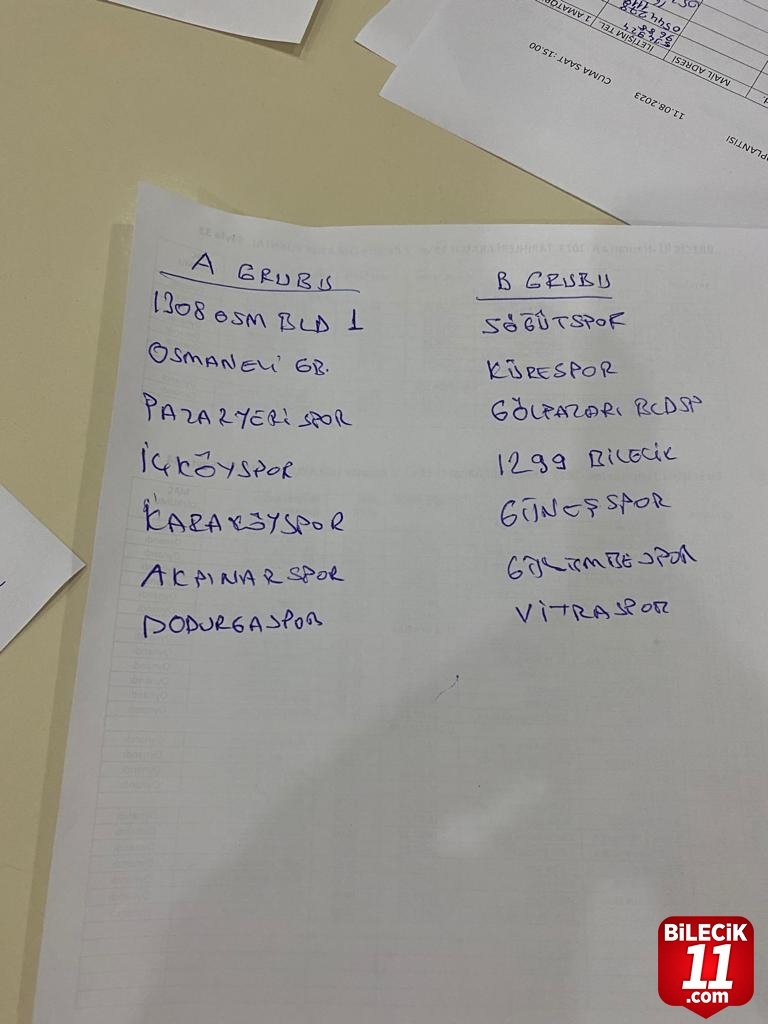 İLETİŞİM TEL
1 AMATÖR
MAİL ADRESİ
CUMA SAAT :15.00
11.08.2023
A GRUBU
1308 OSM BLD 1
OSMANELİ GB.
PAZARYERİ SPOR
İÇKÖYSPOR
KARAKÖYSPOR
AKPINARSPOR
DODURGASPOR
B GRUBU
SÖĞÜTSPOR
KÜRESPOR
GÖLPAZARI BLDSP
1299 BİLECİK
GÜNEŞSPOR
GÜLÜMBESPOR
VİTRASPOR
BİLECİK
11
.com